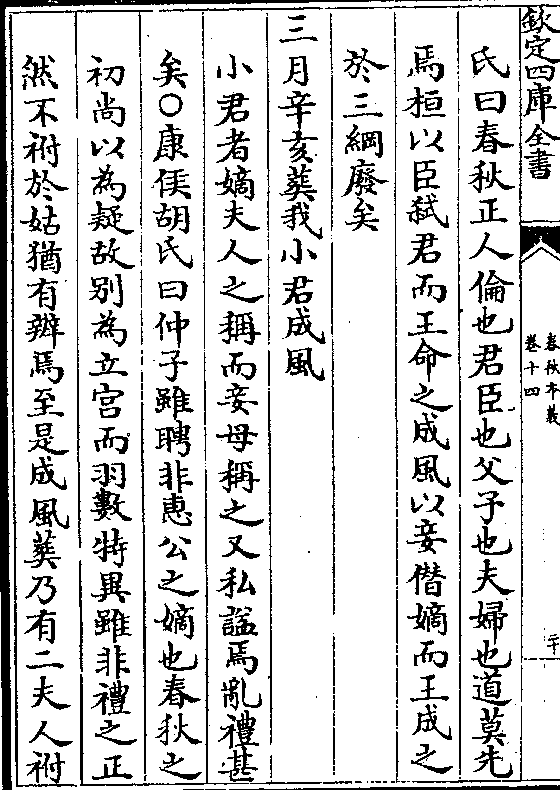 欽定四庫全書
春秋本義
卷十四
二十
氏曰春秋正人倫也君臣也父子也夫婦也道莫先
焉桓以臣弑君而王命之成風以妾僭嫡而王成之
於三綱廢矣
三月辛亥葬我小君成風
小君者嫡夫人之稱而妾母稱之又私諡焉亂禮甚
矣○康侯胡氏曰仲子雖聘非惠公之嫡也春秋之
初尚以為疑故別為立宮而羽數特異雖非禮之正
然不祔於姑猶有辨焉至是成風葬乃有二夫人祔